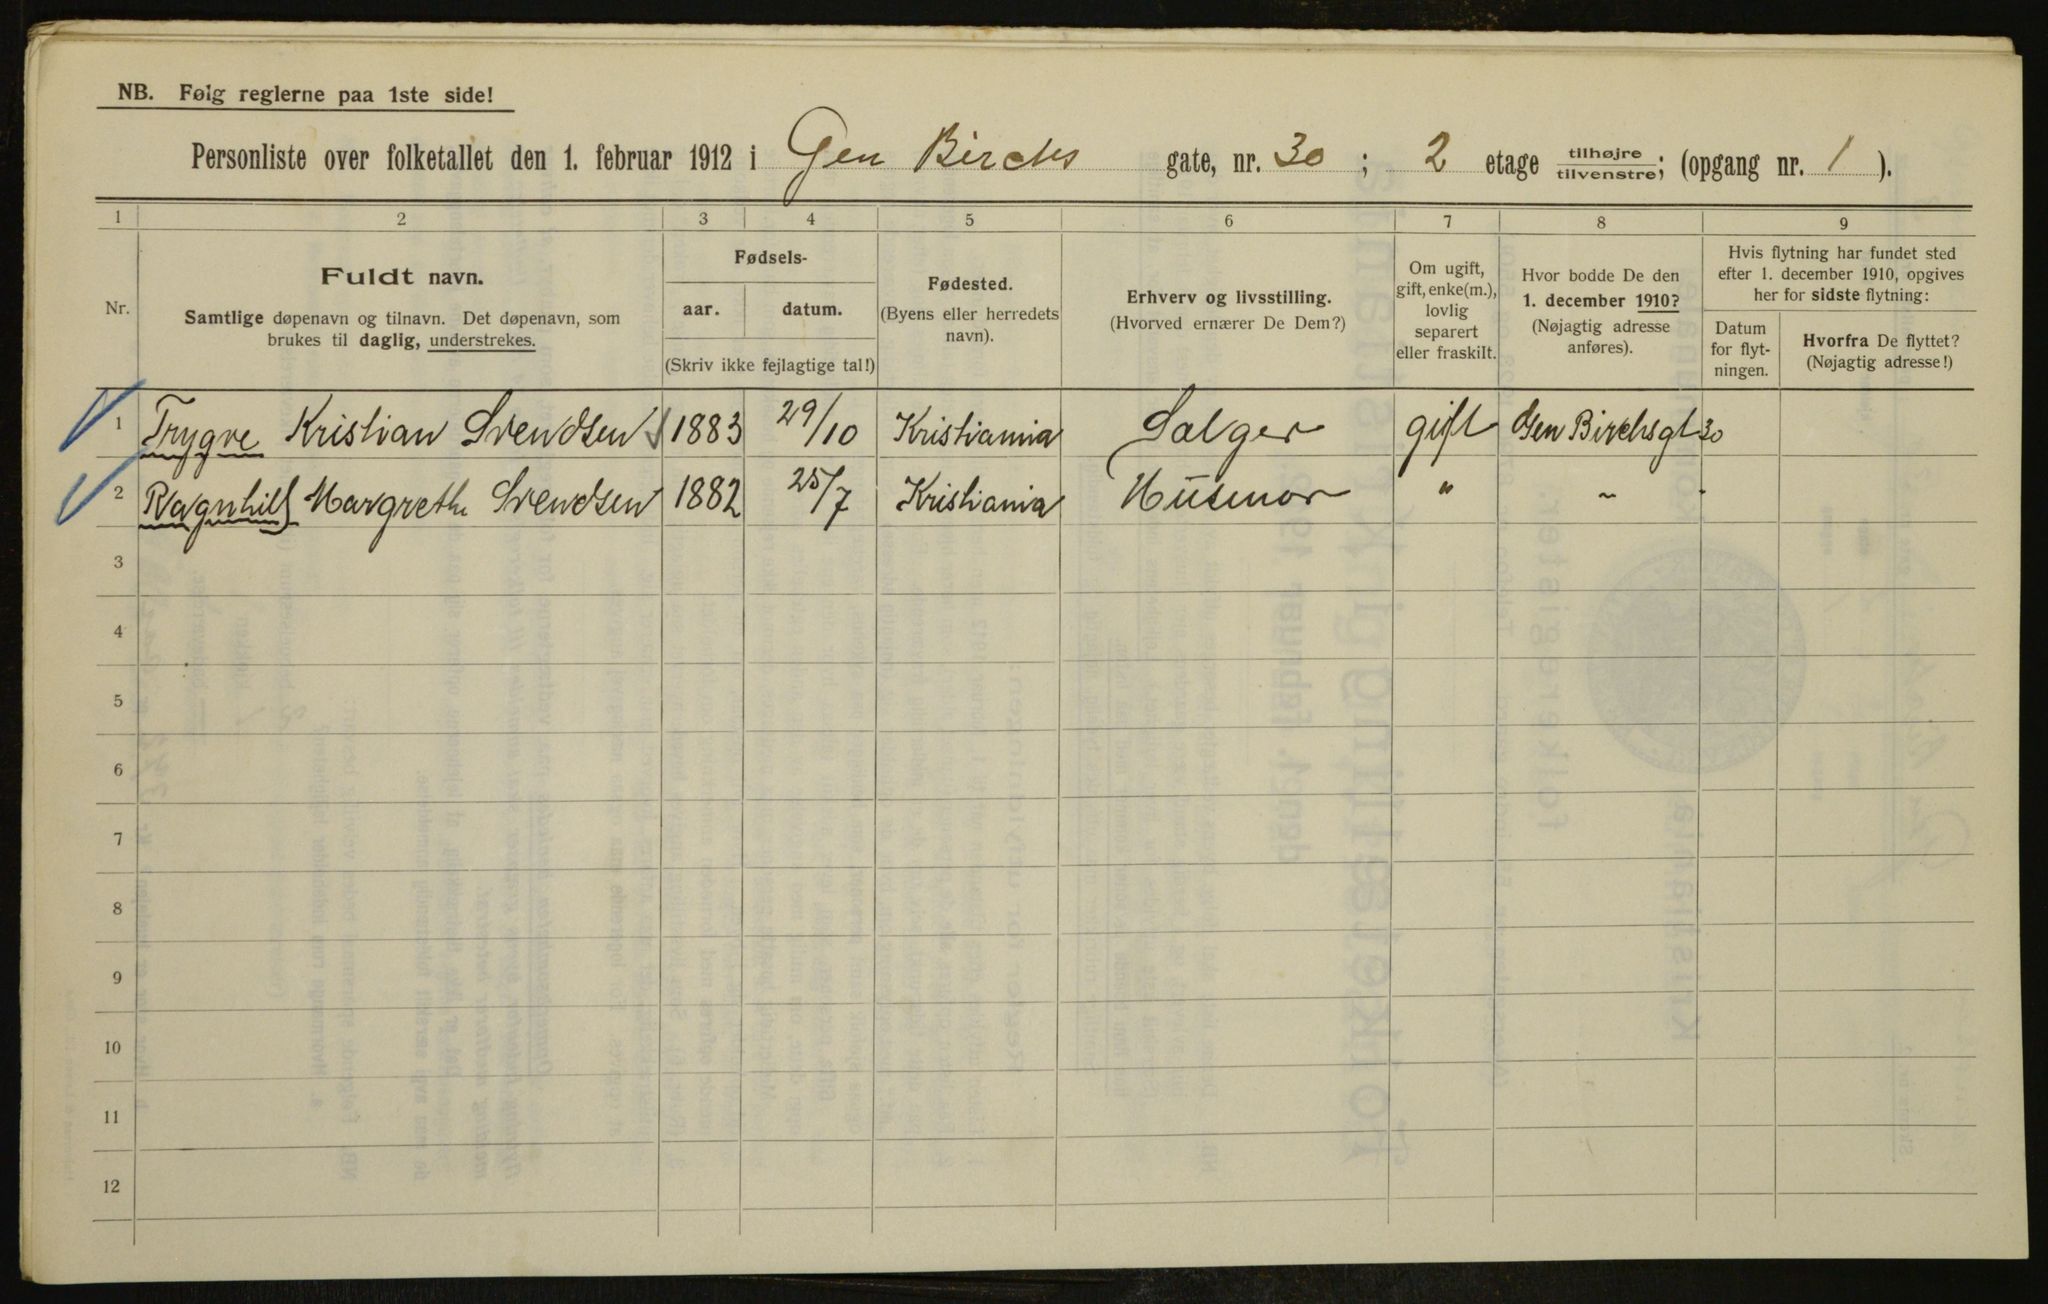 NB. Følg reglerne paa 1ste side!
Personliste over folketallet den 1. februar 1912 i Gen Birchs gate, nr. 30 ; 2 etage tilhøjre/tilvenstre; (opgang nr. 1 ).
1 2 3 4 5 6 7 8 9
Nr.
Fuldt navn.
Samtlige døpenavn og tilnavn. Det døpenavn, som
brukes til daglig, understrekes.
Fødsels-
aar. datum.
(Skriv ikke fejlagtige tal!)
Fødested.
(Byens eller herredets
navn).
Erhverv og livsstilling.
(Hvorved ernærer De Dem?)
Om ugift,
gift, enke(m.),
lovlig
separert
eller fraskilt.
Hvor bodde De den
1. december 1910?
(Nøjagtig adresse
anføres).
Hvis flytning har fundet sted
efter 1. december 1910, opgives
her for sidste flytning:
Datum
for flyt-
ningen.
Hvorfra De flyttet?
(Nøjagtig adresse!)
1 Trygve Kristian Svendsen 1883 29/10 Kristiania Sælger gift Gen Birchsgt 30
2 Ragnhild Margrethe Svendsen 1882 25/7 Kristiania Husmor " ~
3
4
5
6
7
8
9
10
11
12